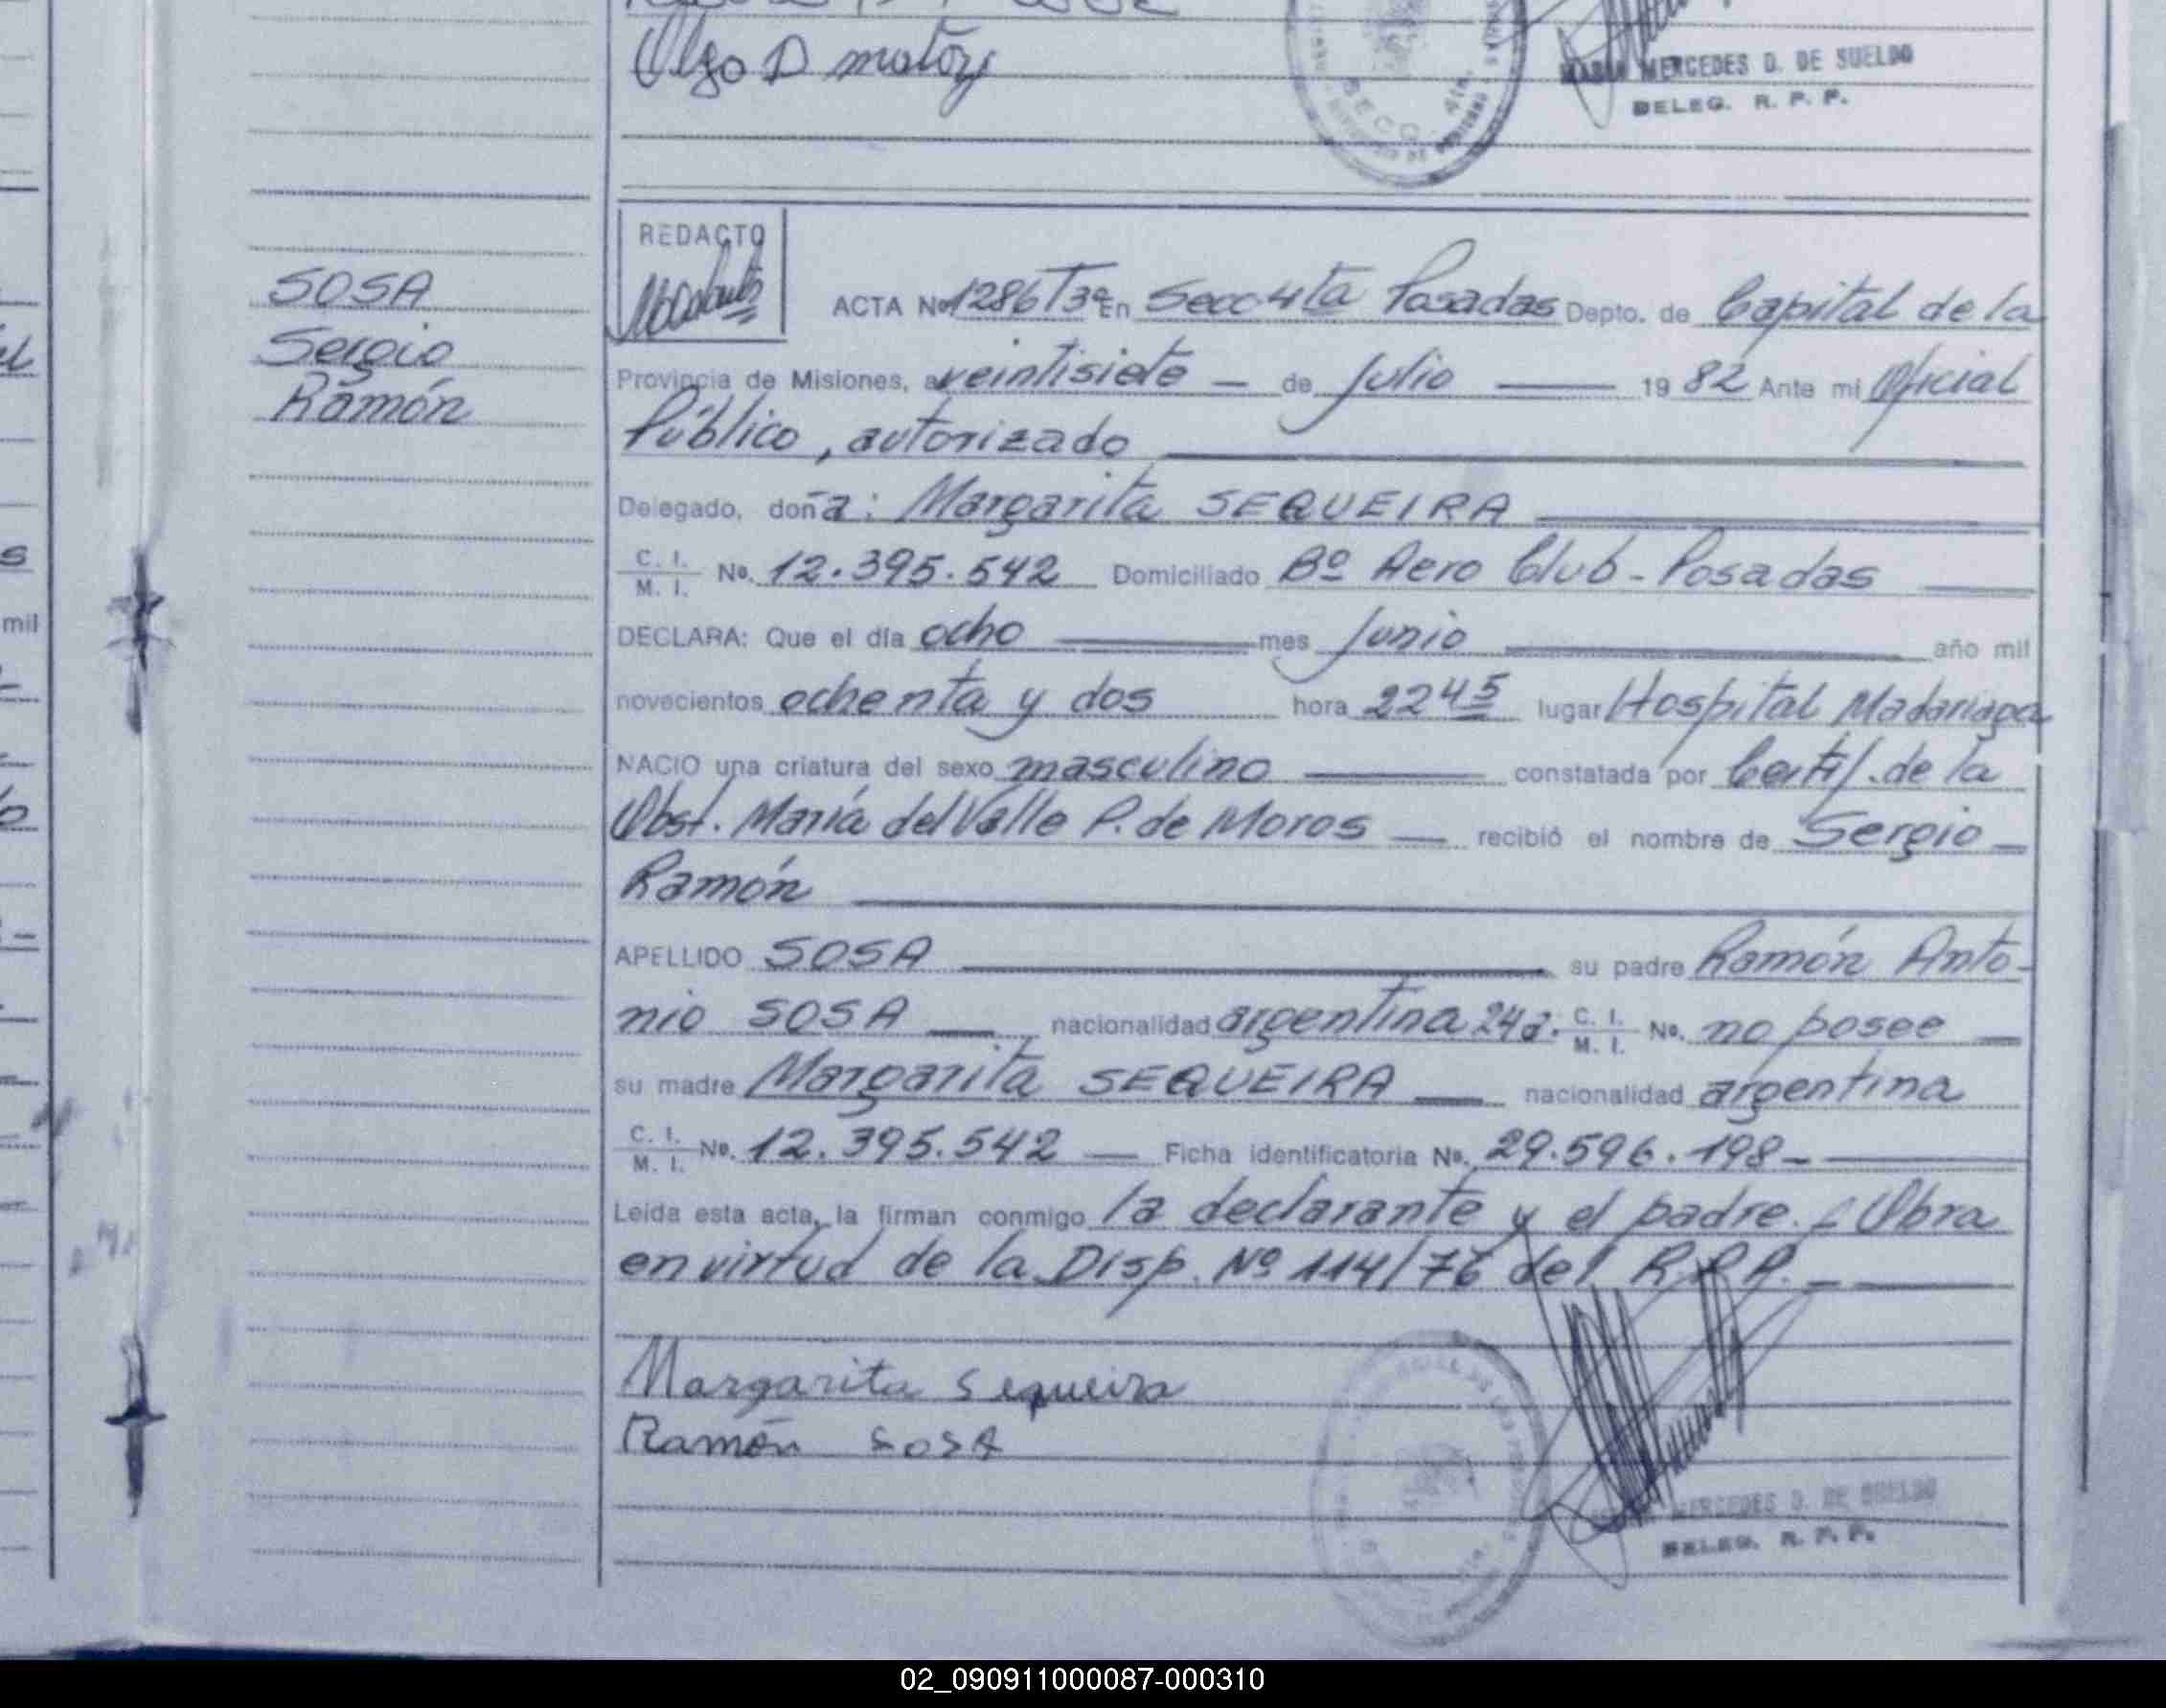 Olga D matoz
MERCEDES D. DE SUELDO
DELEG. R. P. P.
SOSA
Sergio
Ramón
REDACTO
ACTA Nº 1286 Tº 3º En Secc 4ta Posadas Depto. de Capital de la
Provincia de Misiones, a veintisiete — de Julio — 1982 Ante mi Oficial
Público, autorizado
Delegado, doña: Margarita SEQUEIRA
C. I.
M. I. Nº. 12.395.542 Domiciliado Bº Aero Club - Posadas
DECLARA: Que el día ocho mes Junio año mil
novecientos ochenta y dos hora 22 45 lugar Hospital Madariaga
NACIO una criatura del sexo masculino constatada por Certif. de la
Obst. María del Valle P. de Moros — recibió el nombre de Sergio —
Ramón
APELLIDO SOSA su padre Ramón Anto-
nio SOSA — nacionalidad argentina 24a. C. I. M. I. Nº. no posee —
su madre Margarita SEQUEIRA — nacionalidad argentina
C. I.
M. I. Nº. 12.395.542 — Ficha identificatoria Nº. 29.596.198 -
Leida esta acta, la firman conmigo la declarante y el padre. - Obra
en virtud de la Disp. Nº 114/76 del R.P.P. -
Margarita Sequeira
Ramón SOSA
MERCEDES D. DE SUELDO
DELEG. R. P. P.
02_090911000087-000310